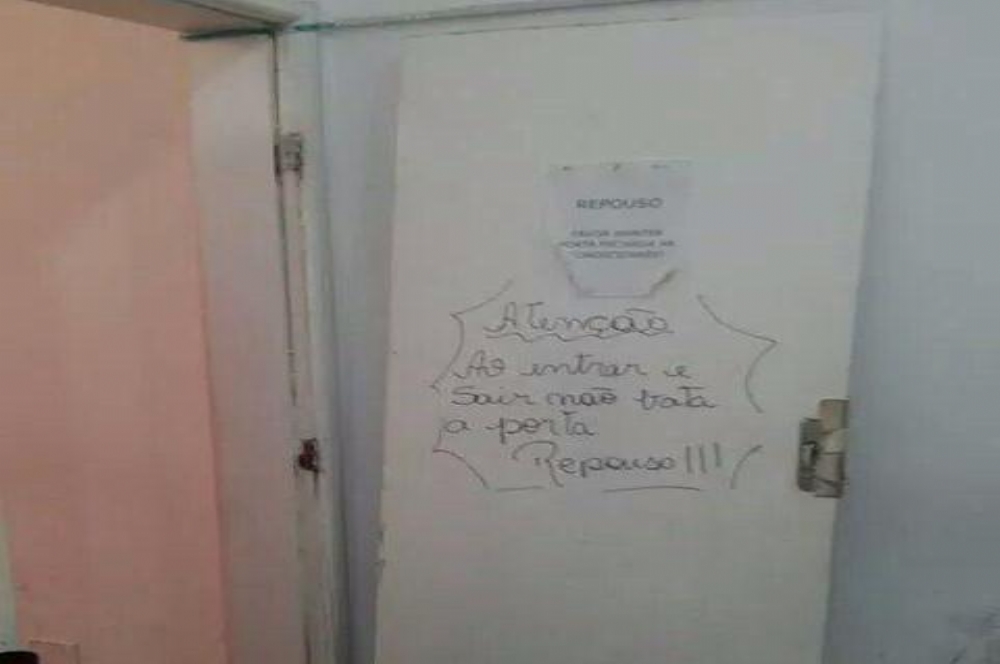 REPOUSO
FAVOR MANTER
PORTA FECHADA
Atenção
Ao entrar e
Sair não bata
a porta
Repouso!!!